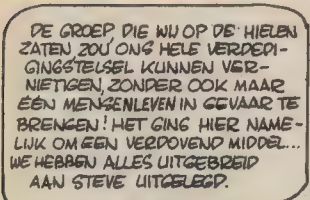 DE GROEP, DIE WIJ OP DE HIELEN
ZATEN ZOU ONS HELE VERDEDI-
GINGSTELSEL KUNNEN VER-
NIETIGEN, ZONDER OOK MAAR
ÉÉN MENSENLEVEN IN GEVAAR TE
BRENGEN! HET GING HIER NAME-
LIJK OM EEN VERDOVEND MIDDEL...
WE HEBBEN ALLES UITGEBREID
AAN STEVE UITGELEGD.